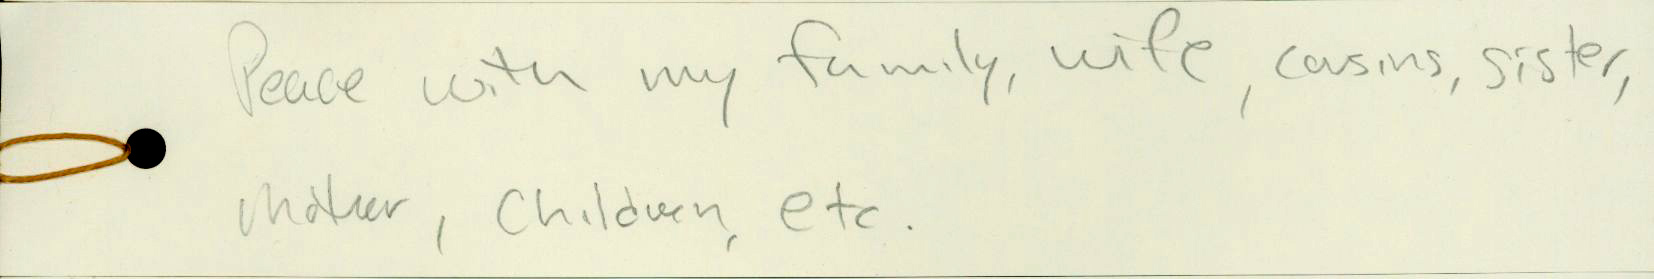 Peace with my family, wife, cousins, sister,
mother, children, etc.